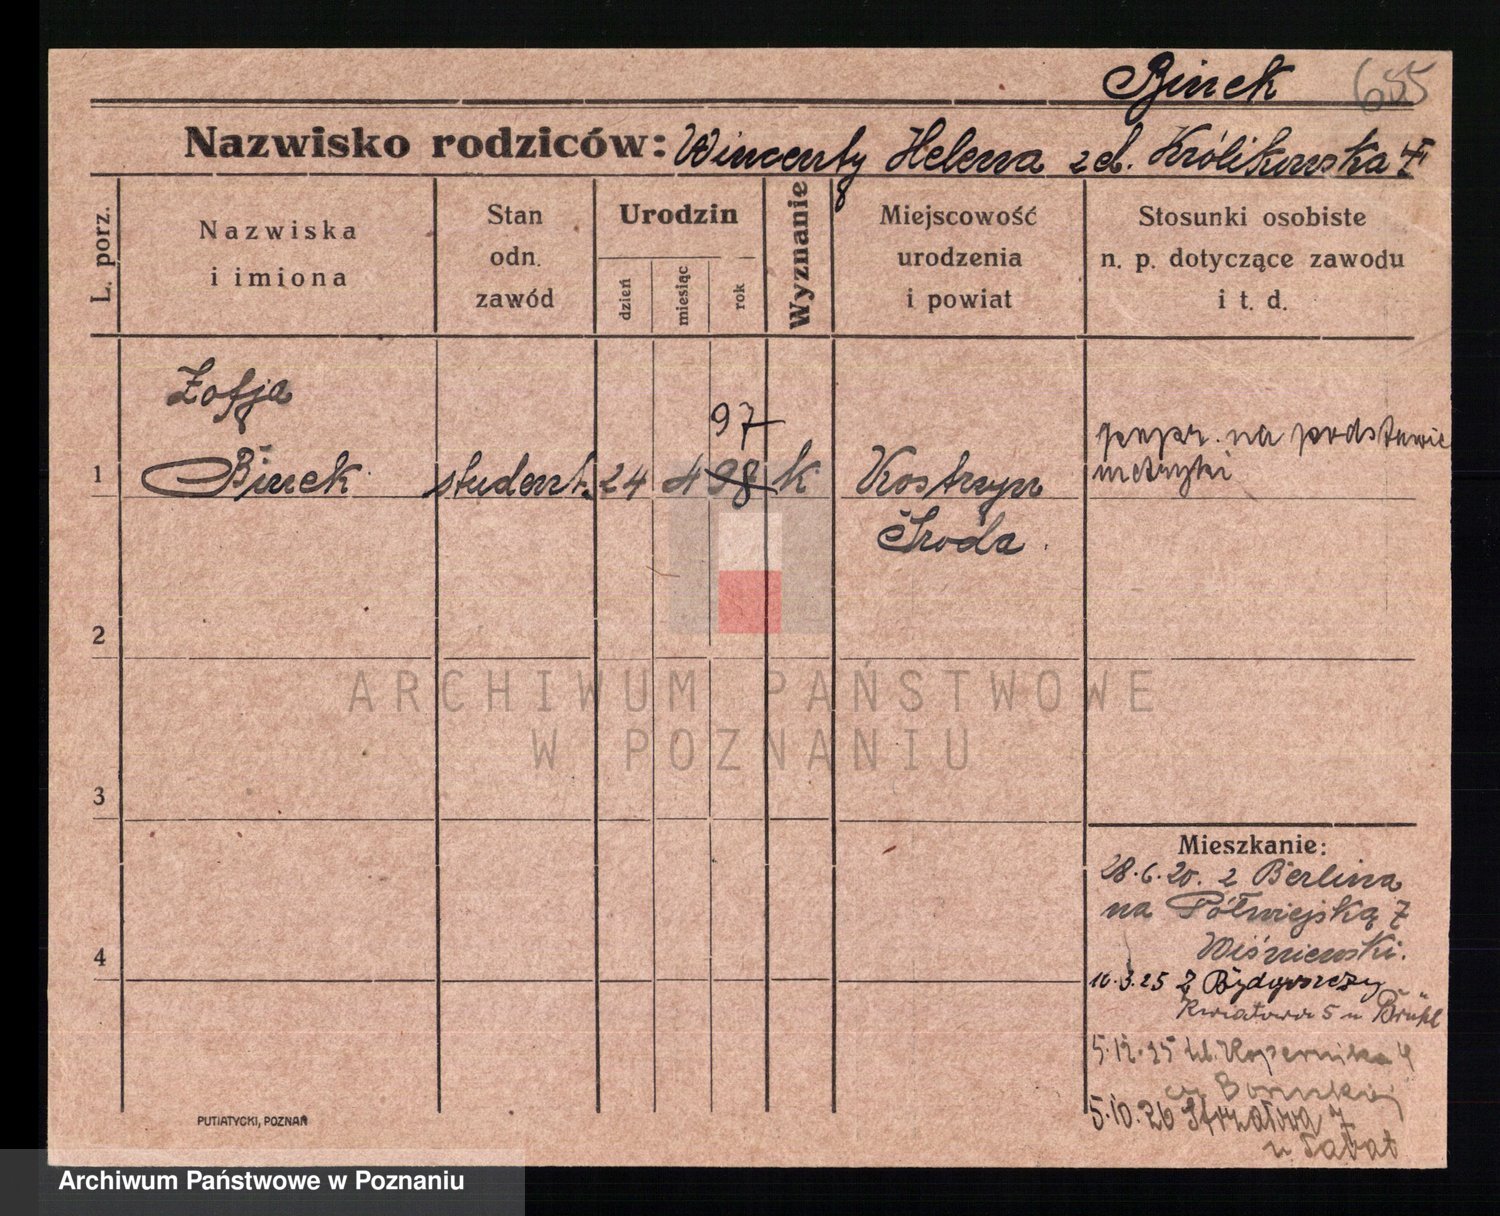 Binek 655
Nazwisko rodziców: Wincenty Helena zd. Królikowska
L. porz.
Nazwiska
i imiona
Stan
odn.
zawód
Urodzin
dzień
miesiąc
rok
Wyznanie
Miejscowość
urodzenia
i powiat
Stosunki osobiste
n. p. dotyczące zawodu
i t. d.
Zofja
97
1 Binek student. 24 4 98 k Kostrzyn
Środa
popr. na podstawie
metryki
2
3
4
ARCHIWUM PAŃSTWOWE
W POZNANIU
Mieszkanie:
28.6.20. z Berlina
na Półwiejską 7
Wiśniewski.
10.3.25 z Bydgoszczy
Kwiatowa 5 u Brühl
5.12.25 ul. Kopernika 4
5.10.26 Strzałowa 7
u Sabat
PUTIATYCKI, POZNAŃ
Archiwum Państwowe w Poznaniu